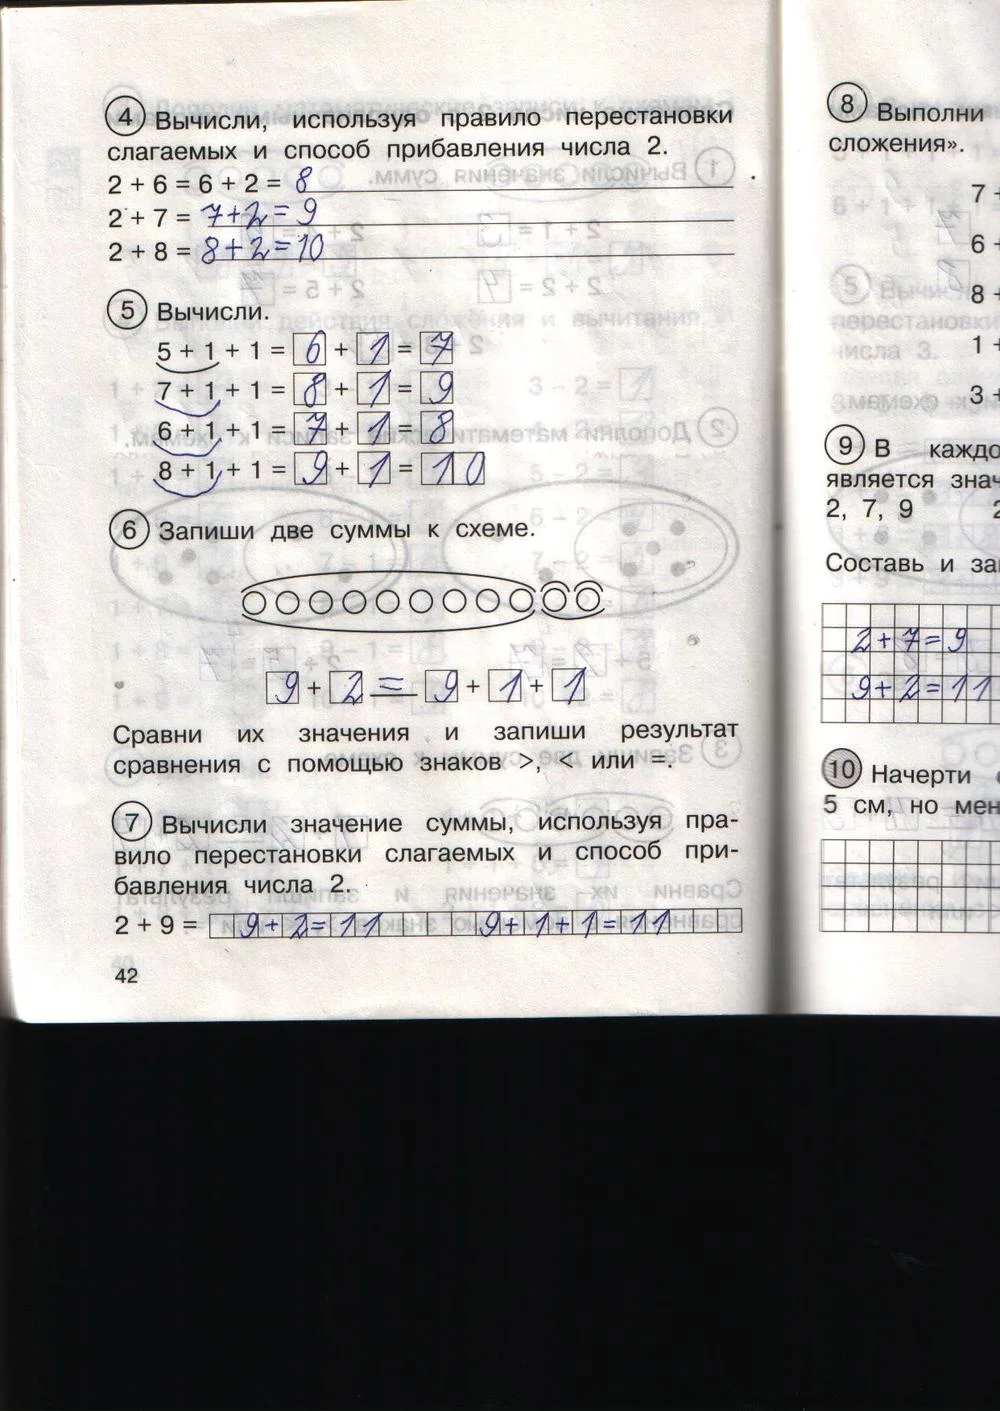 4 Вычисли, используя правило перестановки
слагаемых и способ прибавления числа 2.
2 + 6 = 6 + 2 = 8
2 + 7 = 7+2=9
2 + 8 = 8+2=10
5 Вычисли.
5 + 1 + 1 = 6 + 1 = 7
7 + 1 + 1 = 8 + 1 = 9
6 + 1 + 1 = 7 + 1 = 8
8 + 1 + 1 = 9 + 1 = 10
6 Запиши две суммы к схеме.
9 + 2 = 9 + 1 + 1
Сравни их значения и запиши результат
сравнения с помощью знаков >, < или =.
7 Вычисли значение суммы, используя пра-
вило перестановки слагаемых и способ при-
бавления числа 2.
2 + 9 = 9+2=11 9+1+1=11
42
8 Выполни
сложения».
7 +
6 +
8 +
1 +
3 +
9 В каждо
является знач
2, 7, 9 2
Составь и за
2+7=9
9+2=11
10 Начерти
5 см, но мен